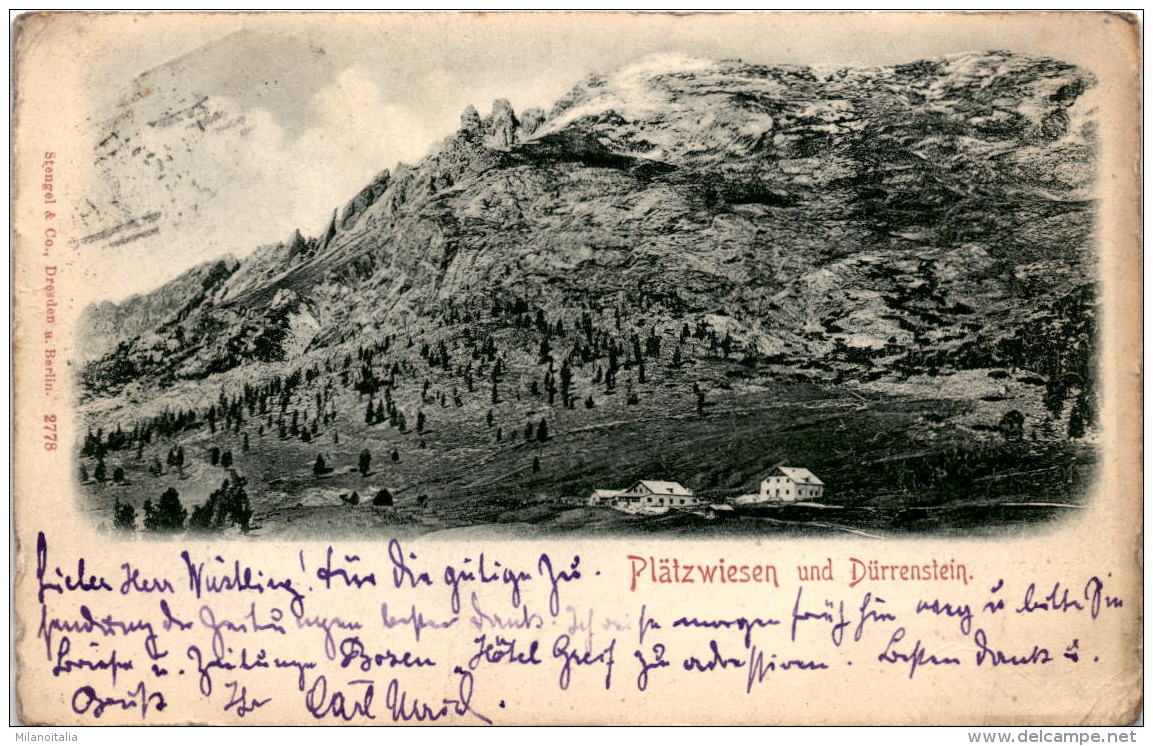 Stengel & Co., Dresden u. Berlin. 2778
Plätzwiesen und Dürrenstein.
Lieber Herr Wüstling! Für die gütige Zu-
sendung der Zeitungen besten Dank. Ich reise morgen früh hier weg u bitte Sie
Briefe u. Zeitunge Bozen „Hôtel Greif zu adressiren. Besten Dank u.
Gruß Ihr Carl
Milanoitalia
http://www.delcampe.net